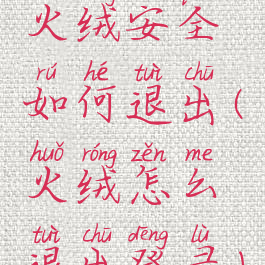 火绒安全
rú hé tuì chū
如何退出(
huǒ róng zěn me
火绒怎么
tuì chū dēng lù
退出登录)